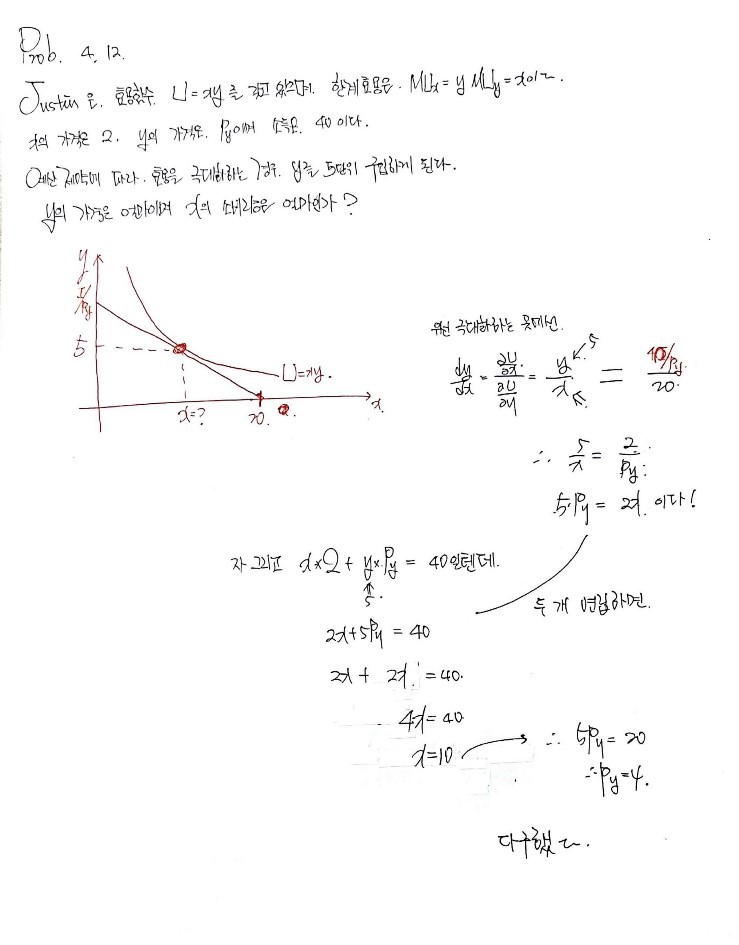 Prob. 4.12.
Justin은. 효용함수. U=xy를 갖고 있으며. 한계효용은. MUx = y MUy = x이다.
x의 가격은 2. y의 가격은. Py이며 소득은. 40이다.
예산 제약에 따라. 효용을 극대화하는 경우. y를 5단위 구입하게 된다.
y의 가격은 얼마이며 x의 소비량은 얼마인가?
y
I/Py
5
U=xy.
x=?
20.
x.
우선 극대화하는 곳에선.
dy/dx = (∂U/∂x)/(∂U/∂y) = y/x = 40/Py/20.
5
∴ 5/x = 2/Py.
5·Py = 2x. 이다!
자 그리고 x×2 + y×Py = 40인텐데.
5.
두 개 연립하면.
2x+5Py = 40
2x + 2x. = 40.
4x = 40
x=10
∴ 5Py = 20
∴ Py=4.
다구했다.